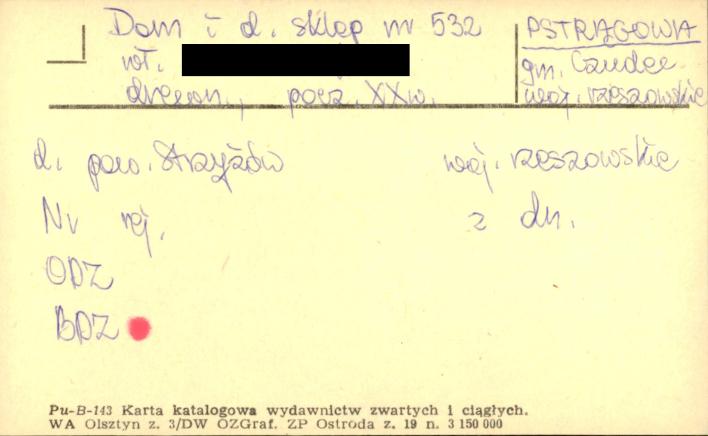 Dom i d. sklep nr 532
wł.
drewn., pocz. XXw.
PSTRĄGOWA
gm. Czudec
woj. rzeszowskie
d. pow. Strzyżów woj. rzeszowskie
Nr rej. z dn.
ODZ
BDZ
Pu-B-143 Karta katalogowa wydawnictw zwartych i ciągłych.
WA Olsztyn z. 3/DW OZGraf. ZP Ostroda z. 19 n. 3 150 000